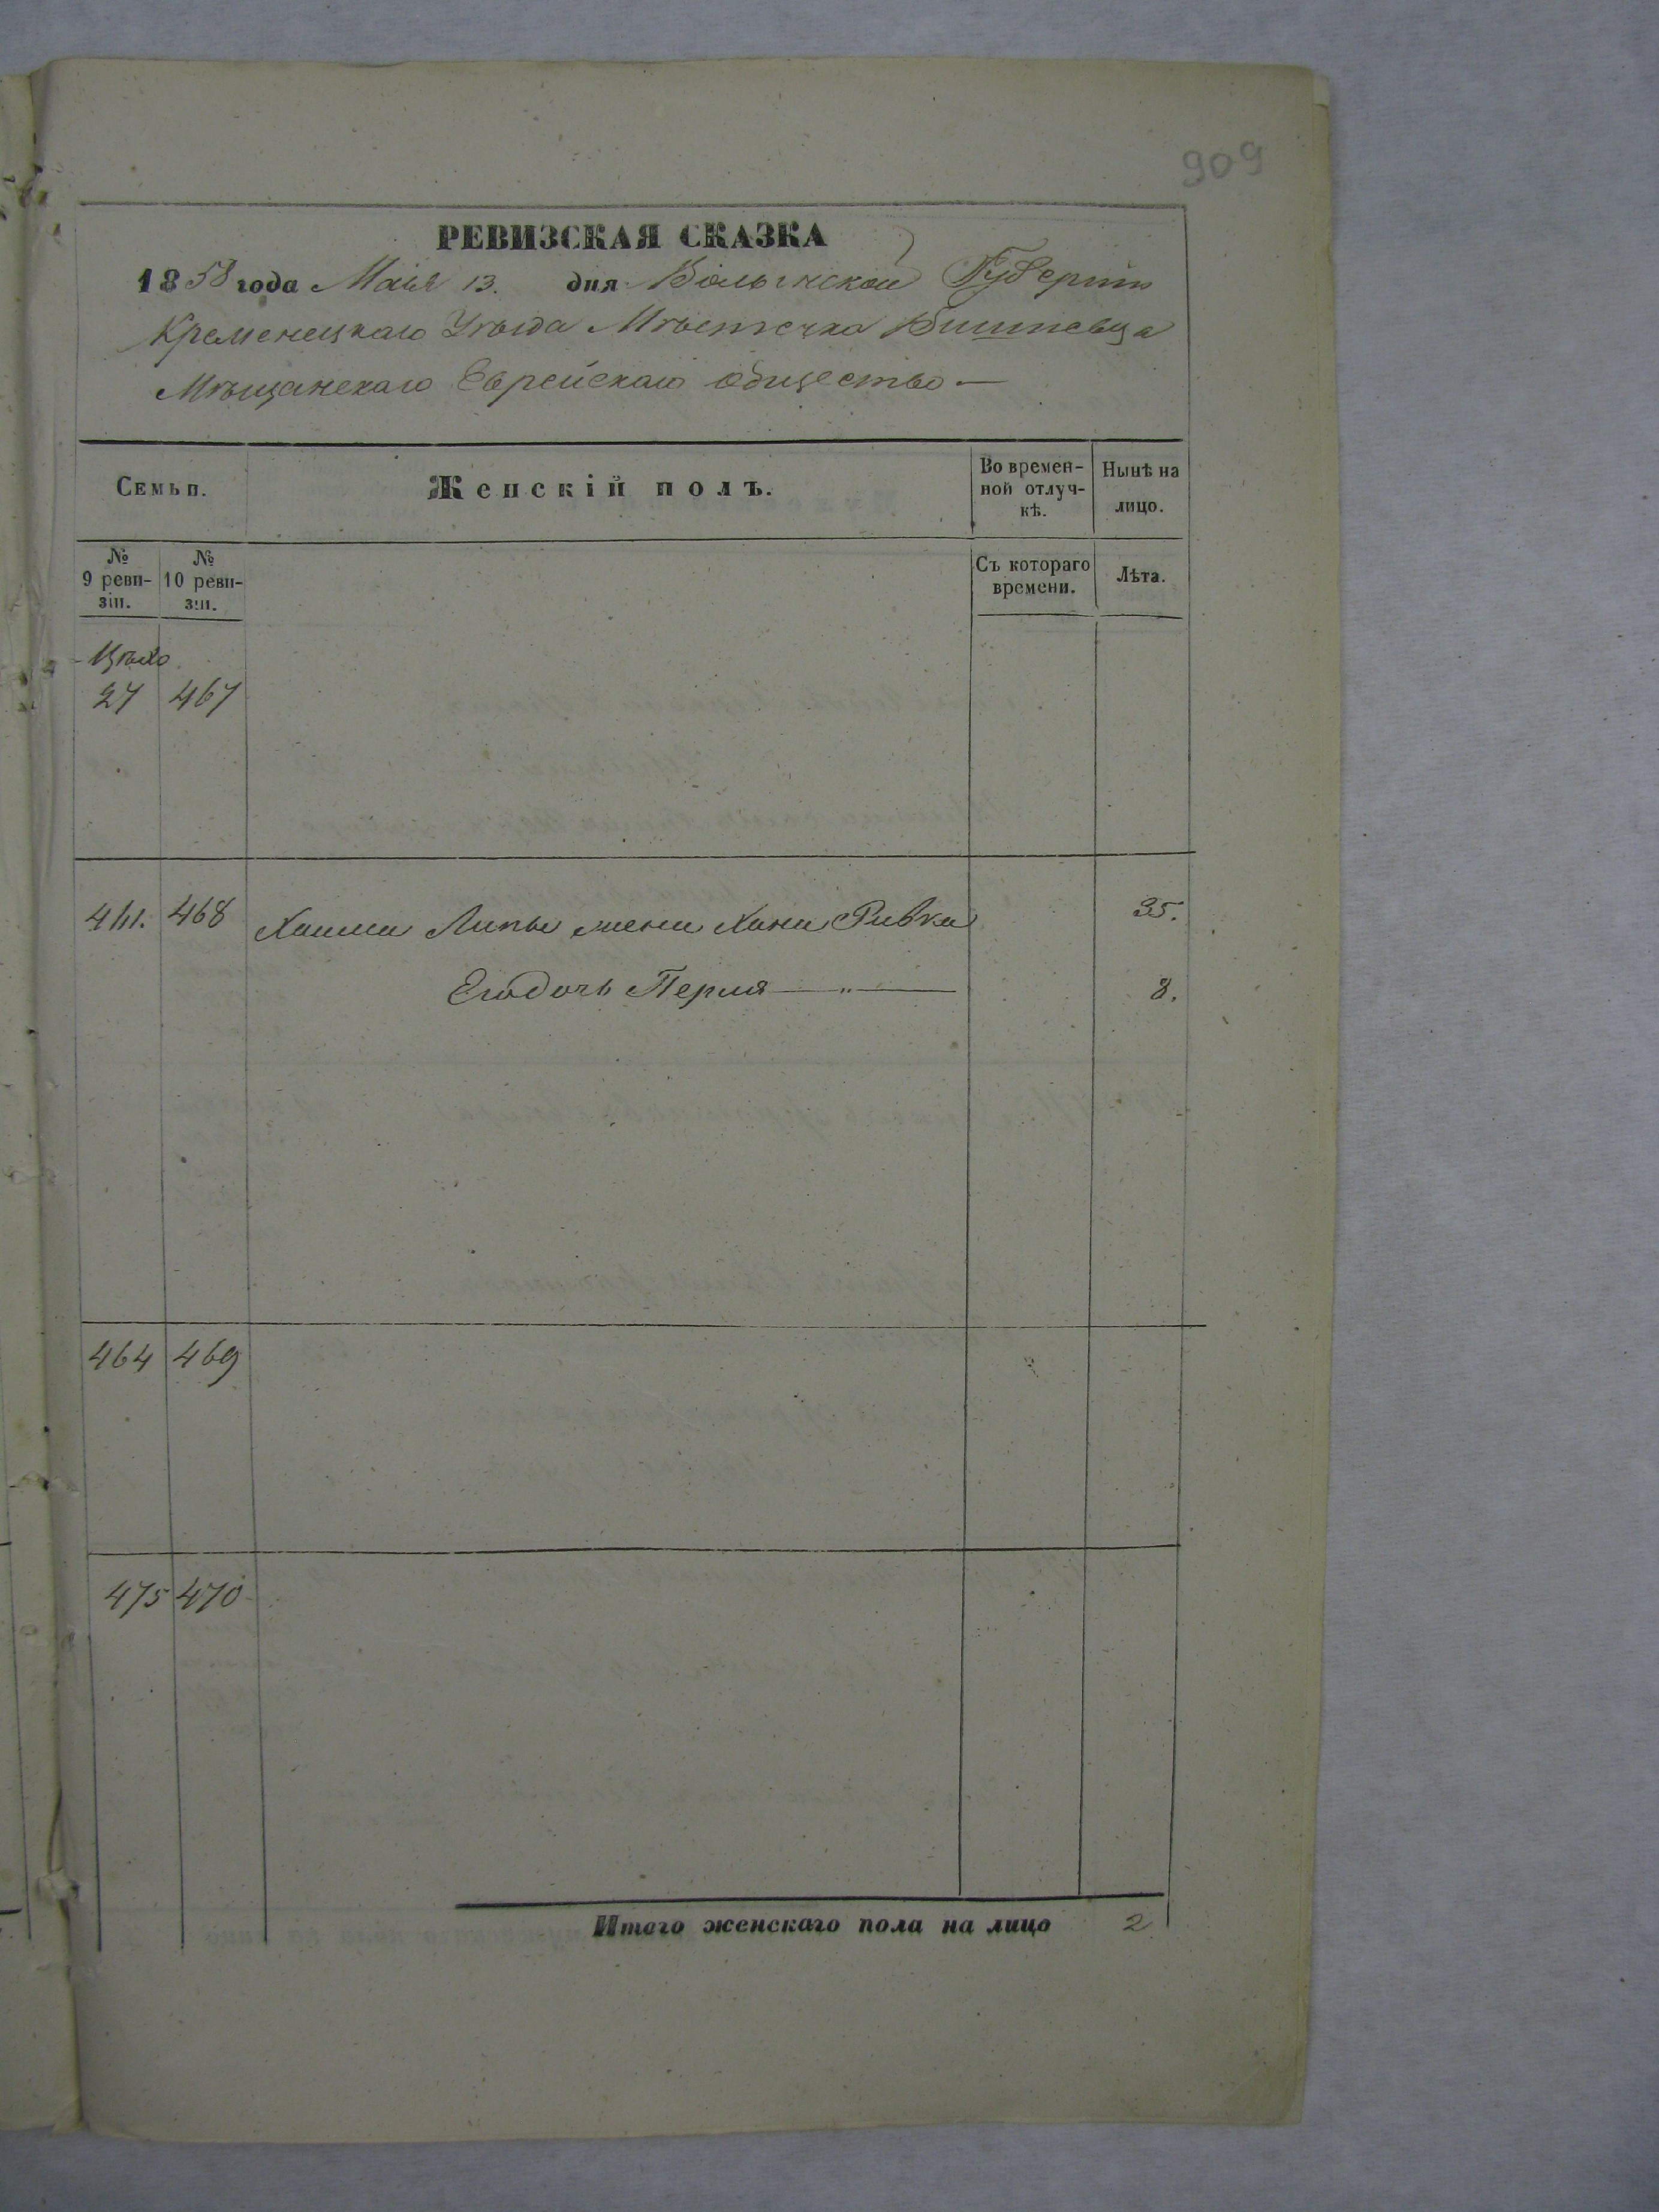 909
РЕВИЗСКАЯ СКАЗКА
1858 года Маія 13. дня Волынской Губерніи
Кременецкаго Уѣзда Мѣстечка Вишневца
Мѣщанскаго Еврейскаго общество —
Семьи.
Женскій полъ.
Во времен-
ной отлуч-
кѣ.
Нынѣ на
лицо.
№
9 реви-
зіи.
№
10 реви-
зіи.
Съ котораго
времени.
Лѣта.
27 467
468 Хаима Липы жена Хана Ривка 35.
Его дочь Перля — „ — 8.
464 469
475 470
Итого женскаго пола на лицо 2